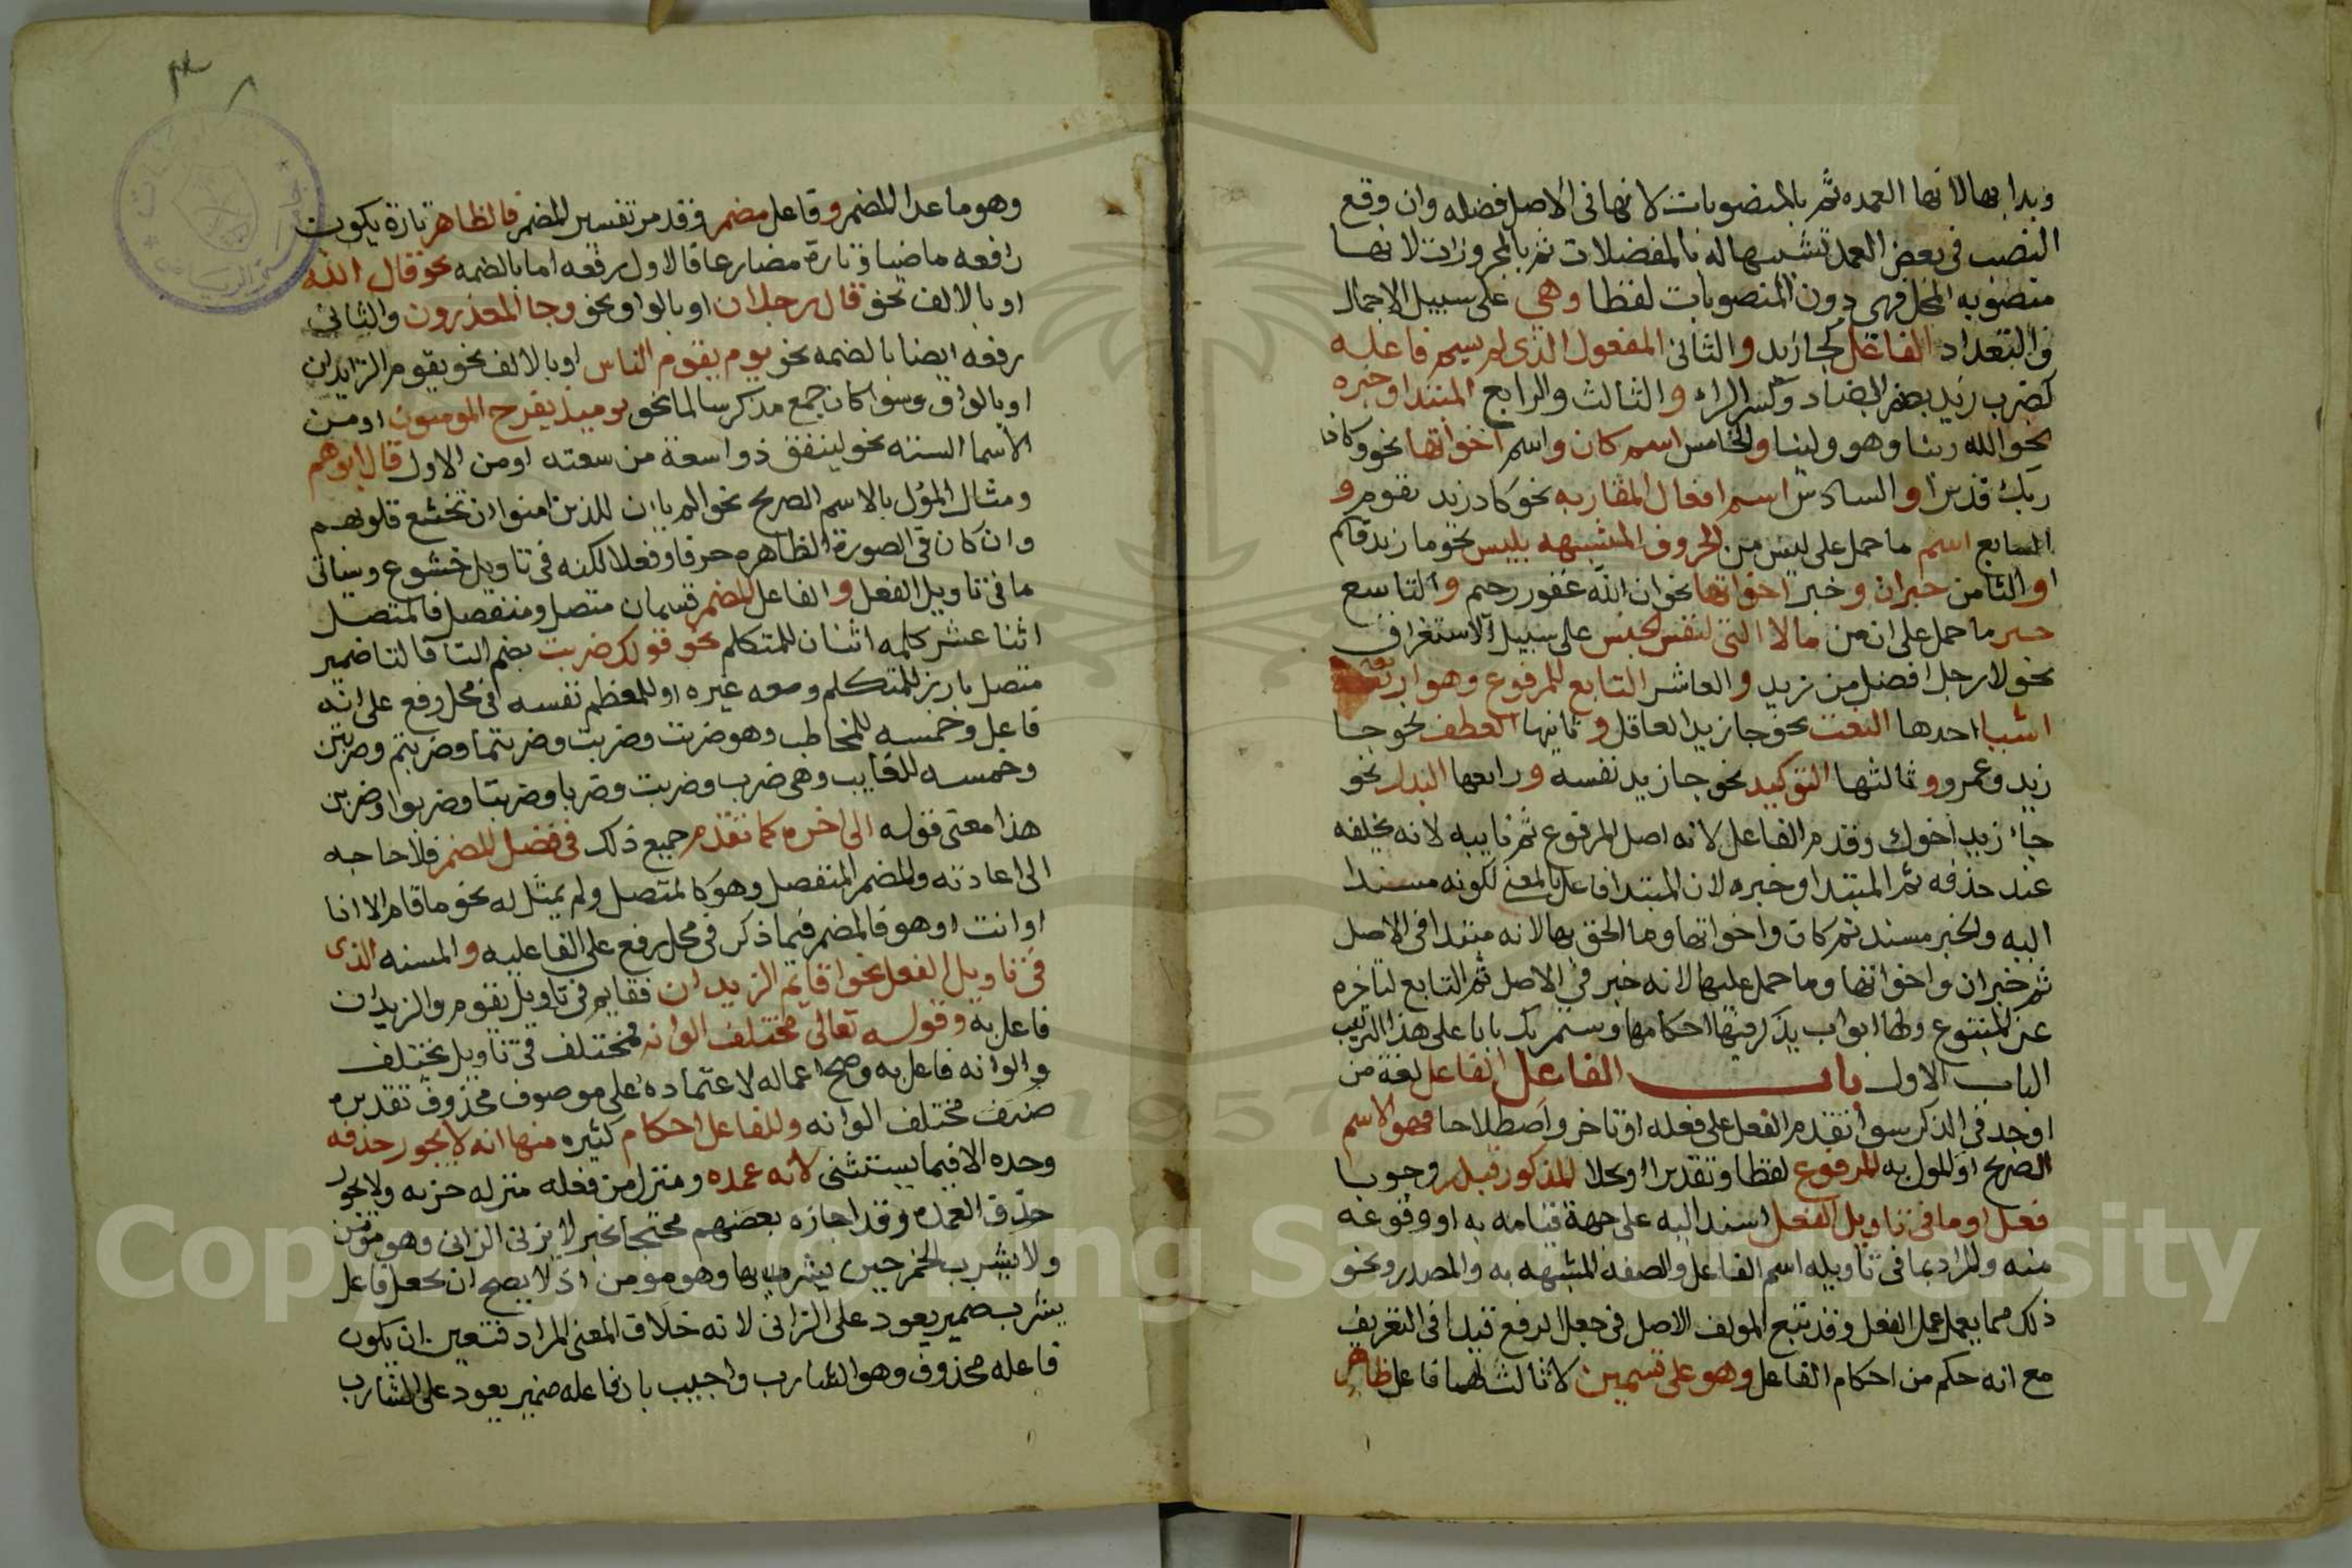 وبدا بها لانها العمده ثم بالمنصوبات لانها فى الاصل فضله وان وقع
النصب فى بعض العمد تشبيها له بالمفضلات ثم بالمجرورات لانها
منصوبه المحل فهى دون المنصوبات لفظا وهى على سبيل الاجمال
والتعداد الفاعل كجا زيد والثانى المفعول الذى لم يسم فاعله
كضرب زيد بضم الضاد وكسر الراء والثالث والرابع المبتدا وخبره
نحو الله ربنا وهو ولينا والخامس اسم كان واسم اخواتها نحو وكان
ربك قديرا والسادس اسم افعال المقاربه نحو كاد زيد يقوم و
السابع اسم ما حمل على ليس من الحروف المشبهه بليس نحو ما زيد قايم
والثامن خبر ان وخبر اخواتها نحو ان الله غفور رحيم والتاسع
خبر ما حمل على ان من مالا التى لنفى الجنس على سبيل الاستغراق
نحو لا رجل افضل من زيد والعاشر التابع للمرفوع وهو اربعة
اشيا احدها النعت نحو جا زيد العاقل وثانيها العطف نحو جا
زيد وعمرو وثالثها التوكيد نحو جا زيد نفسه ورابعها البدل نحو
جاء زيد اخوك وقدم الفاعل لانه اصل المرفوع ثم نايبه لانه يخلفه
عند حذفه ثم المبتدا وخبره لان المبتدا فاعل بالمعنى لكونه مسندا
اليه والخبر مسند ثم كان واخواتها وما الحق بها لانه مبتدا فى الاصل
ثم خبر ان واخواتها وما حمل عليها لانه خبر فى الاصل ثم التابع لتاخره
عن المتبوع ولها ابواب يذكر فيها احكامها وستمر بك بابا على هذا الترتيب
الباب الاول باب الفاعل الفاعل لغة من
اوجد فى الذكر سوا تقدم الفعل على فعله او تاخر واصطلاحا فهو الاسم
الصريح او المول به المرفوع لفظا وتقديرا او محلا المذكور قبله وجوبا
فعل او ما فى تاويل الفعل اسند اليه على جهة قيامه به او وقوعه
منه والمراد بما فى تاويله اسم الفاعل والصفه المشبهه به والمصدر ونحو
ذلك مما يعمل عمل الفعل وقد تبع المولف الاصل فى جعل الرفع قيدا فى التعريف
مع انه حكم من احكام الفاعل وهو على قسمين لا ثالث لهما فاعل ظاهر
وهو ما عدا المضمر وفاعل مضمر وقد مر تفسير المضمر فالظاهر تارة يكون
رافعه ماضيا وتارة مضارعا فالاول رفعه اما بالضمه نحو قال الله
او بالالف نحو قال رجلان او بالواو نحو وجا المعذرون والثانى
رفعه ايضا بالضمه نحو يوم يقوم الناس او بالالف نحو يقوم الزايدان
او بالواو وسوا كان جمع مذكر سالما نحو يوميذ يفرح المومنون او من
الاسما السته نحو لينفق ذو اسعة من سعته او من الاول قال ابوهم
ومثال المؤل بالاسم الصريح نحو الم يان للذين امنوا ان تخشع قلوبهم
وان كان فى الصورة الظاهره حرفا وفعلا لكنه فى تاويل خشوع وسياتى
ما فى تاويل الفعل والفاعل المضمر قسمان متصل ومنفصل فالمتصل
اثنا عشر كلمه اثنان للمتكلم نحو قولك ضربت بضم التا فالتا ضمير
متصل بارز للمتكلم ومعه غيره او للمعظم نفسه فى محل رفع على انه
فاعل وخمسه للمخاطب وهو ضربت وضربت وضربتما وضربتم وضربتن
وخمسه للغايب وهى ضرب وضربت وضربا وضربتا وضربوا وضربن
هذا معنى قوله الى اخره كما تقدم جميع ذلك فى فصل المضمر فلا حاجه
الى اعادته والمضمر المنفصل وهو كالمتصل ولم يمثل له نحو ما قام الا انا
او انت او هو فالمضمر فيما ذكر فى محل رفع على الفاعليه والمسنه الذى
فى تاويل الفعل نحو اقايم الزيدان فقايم فى تاويل يقوم والزيدان
فاعل به وقوله تعالى مختلف الوانه فمختلف فى تاويل يختلف
والوانه فاعل به وصح اعماله لاعتماده على موصوف محذوف تقديره
صنف مختلف الوانه وللفاعل احكام كثيره منها انه لا يجوز حذفه
وحده الا فيما يستثنى لانه عمده ومنزل من فعله منزله جزيه ولا يجوز
حذف العمده وقد اجازه بعضهم محتجا بخبر لا يزنى الزانى وهو مومن
ولا يشرب الخمر حين يشربها وهو مومن اذ لا يصح ان نجعل فاعل
يشرب ضمير يعود على الزانى لانه خلاف المعنى المراد فتعين ان يكون
فاعله محذوف وهو الشارب واجيب بان فاعله ضمير يعود على الشارب